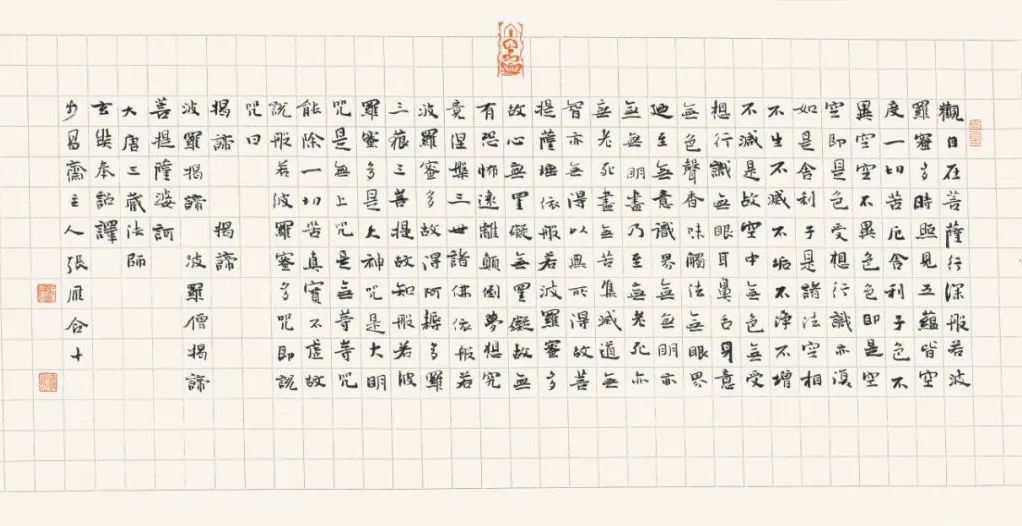 觀自在菩薩行深般若波
羅蜜多時照見五蘊皆空
度一切苦厄舍利子色不
異空空不異色色即是空
空即是色受想行識亦復
如是舍利子是諸法空相
不生不滅不垢不淨不增
不減是故空中無色無受
想行識無眼耳鼻舌身意
無色聲香味觸法無眼界
廼至無意識界無無明亦
無無明盡乃至無老死亦
無老死盡無苦集滅道無
智亦無得以無所得故菩
提薩埵依般若波羅蜜多
故心無罣礙無罣礙故無
有恐怖遠離顛倒夢想究
竟涅槃三世諸佛依般若
波羅蜜多故得阿耨多羅
三藐三菩提故知般若波
羅蜜多是大神咒是大明
咒是無上咒是無等等咒
能除一切苦真實不虛故
說般若波羅蜜多咒即說
咒曰
揭諦 揭諦
波羅揭諦 波羅僧揭諦
菩提薩婆訶
大唐三藏法師
玄奘奉詔譯
昌齋主人張雁合十